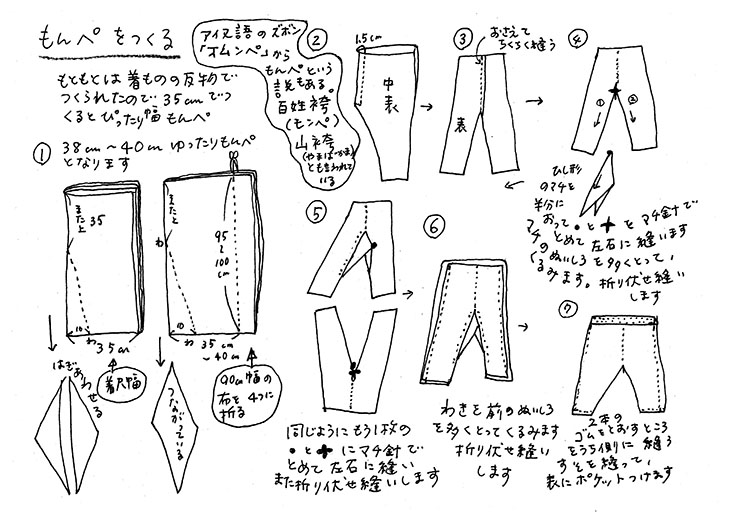 もんペをつくる
もともとは着ものの反物で
つくられたので 35cmでつ
くるとぴったり幅もんペ
38cm〜40cm ゆったりもんペ
となります
アイヌ語のズボン
「オムンペ」から
もんペという
説もある。
百姓袴
(モンペ)
山袴
(やまばかま)
とも言われて
いる
①
また上 35
10
わ
35cm
着尺幅
はぎあわせる
またと
わ
95
〜
100
cm
10
わ 35cm
〜40cm
90cm幅の
布を4つに
折る
つながっている
②
1.5cm
中表
③
おさえて
ちくちく縫う
表
④
①
②
ひし形
のマチを
半分に
おって ・と✚とマチ針で
とめて左右に縫います
マチのぬいしろを多くとって、
くるみます。折り伏せ縫い
します
⑤
同じようにもう1枚の
・と✚にマチ針で
とめて左右に縫い
また折り伏せ縫いします
⑥
わきを前のぬいしろ
を多くとってくるみます
折り伏せ縫い
します
⑦
2本の
ゴムをとおすところ
をうち側に縫う
すそを縫って、
表にポケットつけます